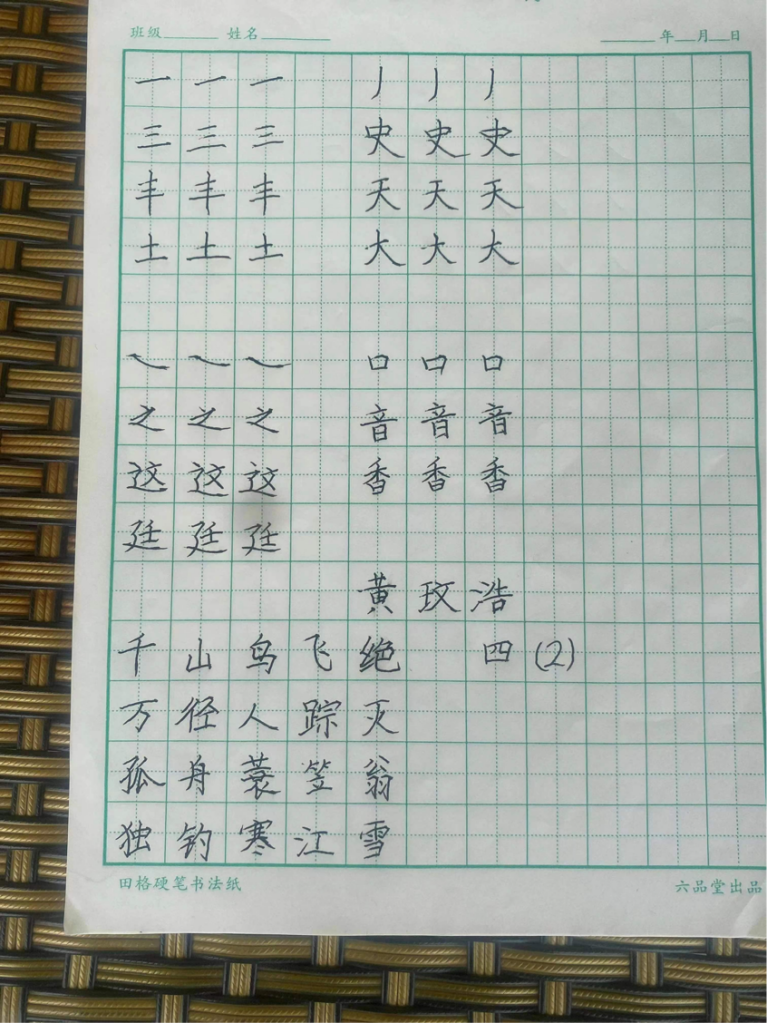 班级 姓名 年 月 日
一 一 一 丿 丿 丿
三 三 三 史 史 史
丰 丰 丰 天 天 天
土 土 土 大 大 大
㇏ ㇏ ㇏ 口 口 口
之 之 之 音 音 音
这 这 这 香 香 香
廷 廷 廷
黄 玟 浩
千 山 鸟 飞 绝 四 (2)
万 径 人 踪 灭
孤 舟 蓑 笠 翁
独 钓 寒 江 雪
田格硬笔书法纸 六品堂出品